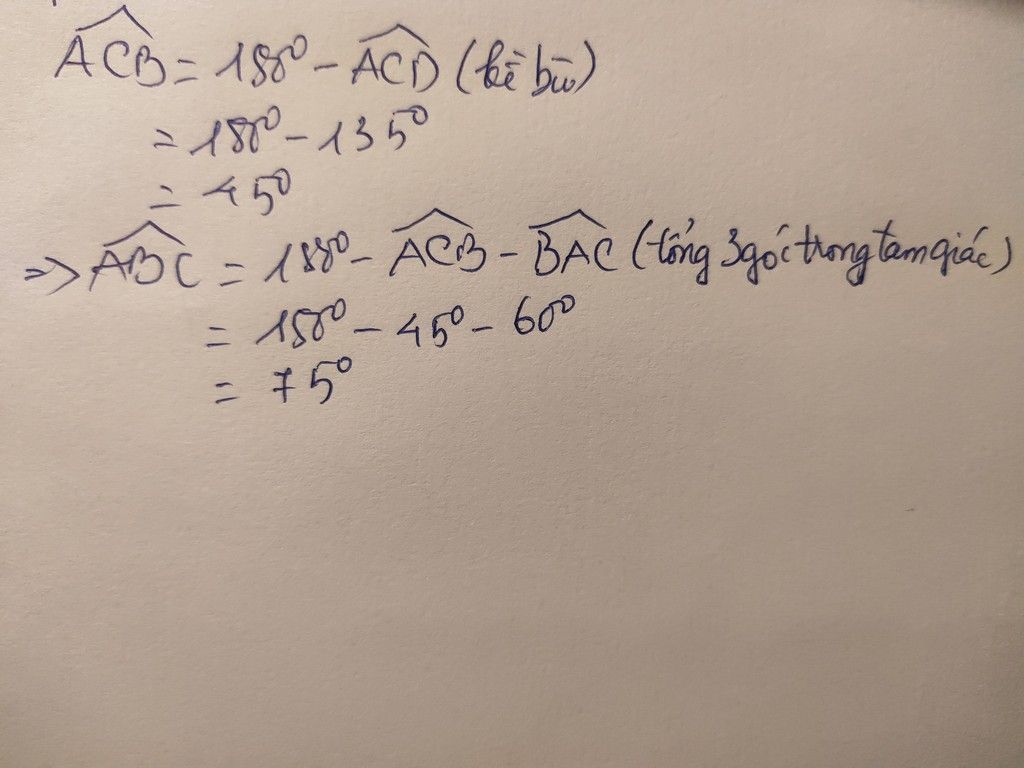 ACB = 180° - ACD (kề bù)
= 180° - 135°
= 45°
=> ABC = 180° - ACB - BAC (tổng 3 góc trong tam giác)
= 180° - 45° - 60°
= 75°